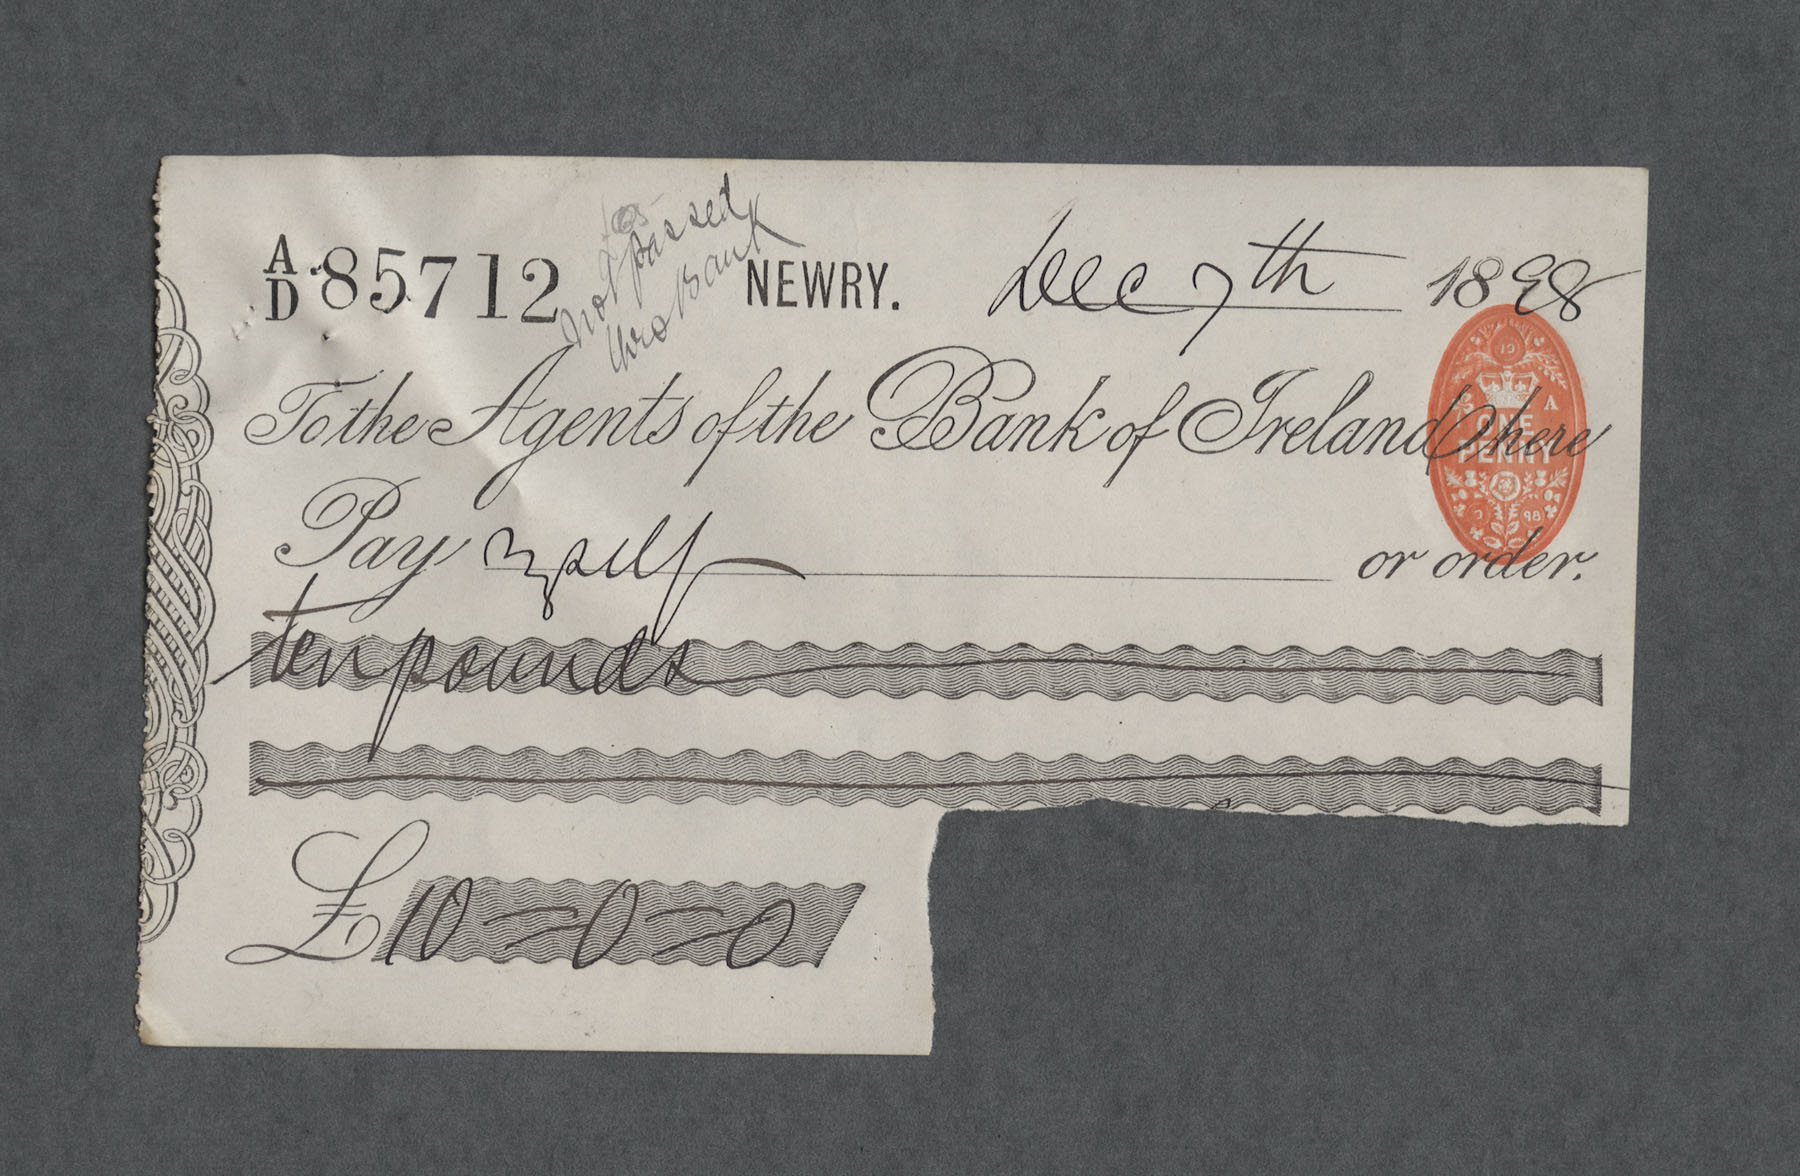 not passed
thro Bank
A/D 85712 NEWRY. Dec 7th 1898
To the Agents of the Bank of Ireland here
Pay myself or order.
ten pounds
£10=0=0
ONE
PENNY
A
98